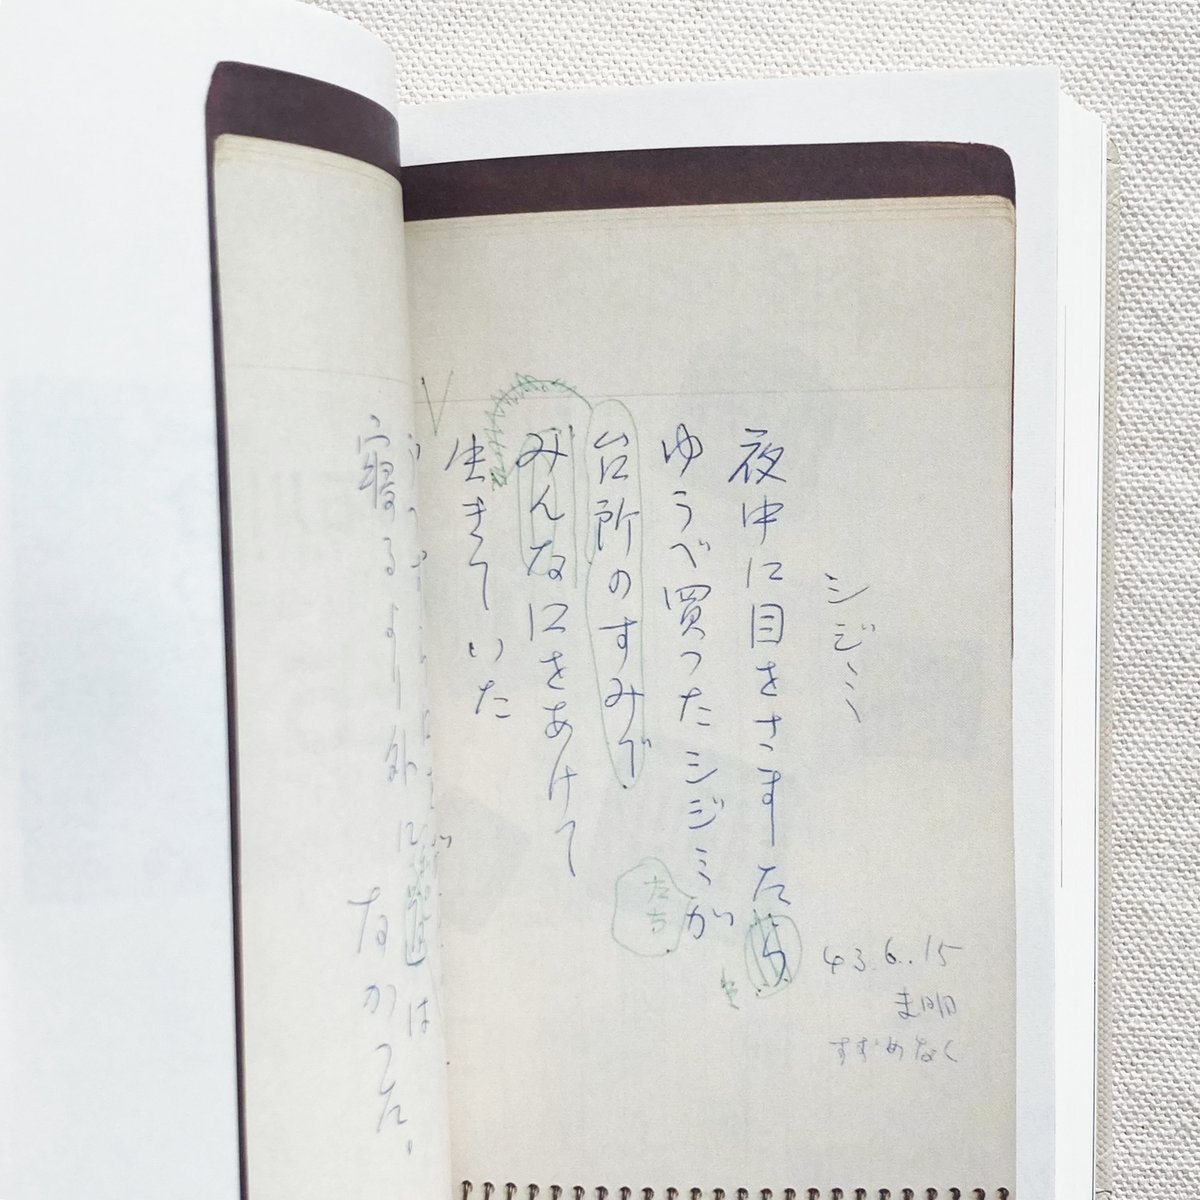 43.6.15
未明
すずめなく
シジミ
夜中に目をさました
ゆうべ買ったシジミが
たち
台所のすみで
みんな口をあけて
生きていた
寝るより外に なかった。